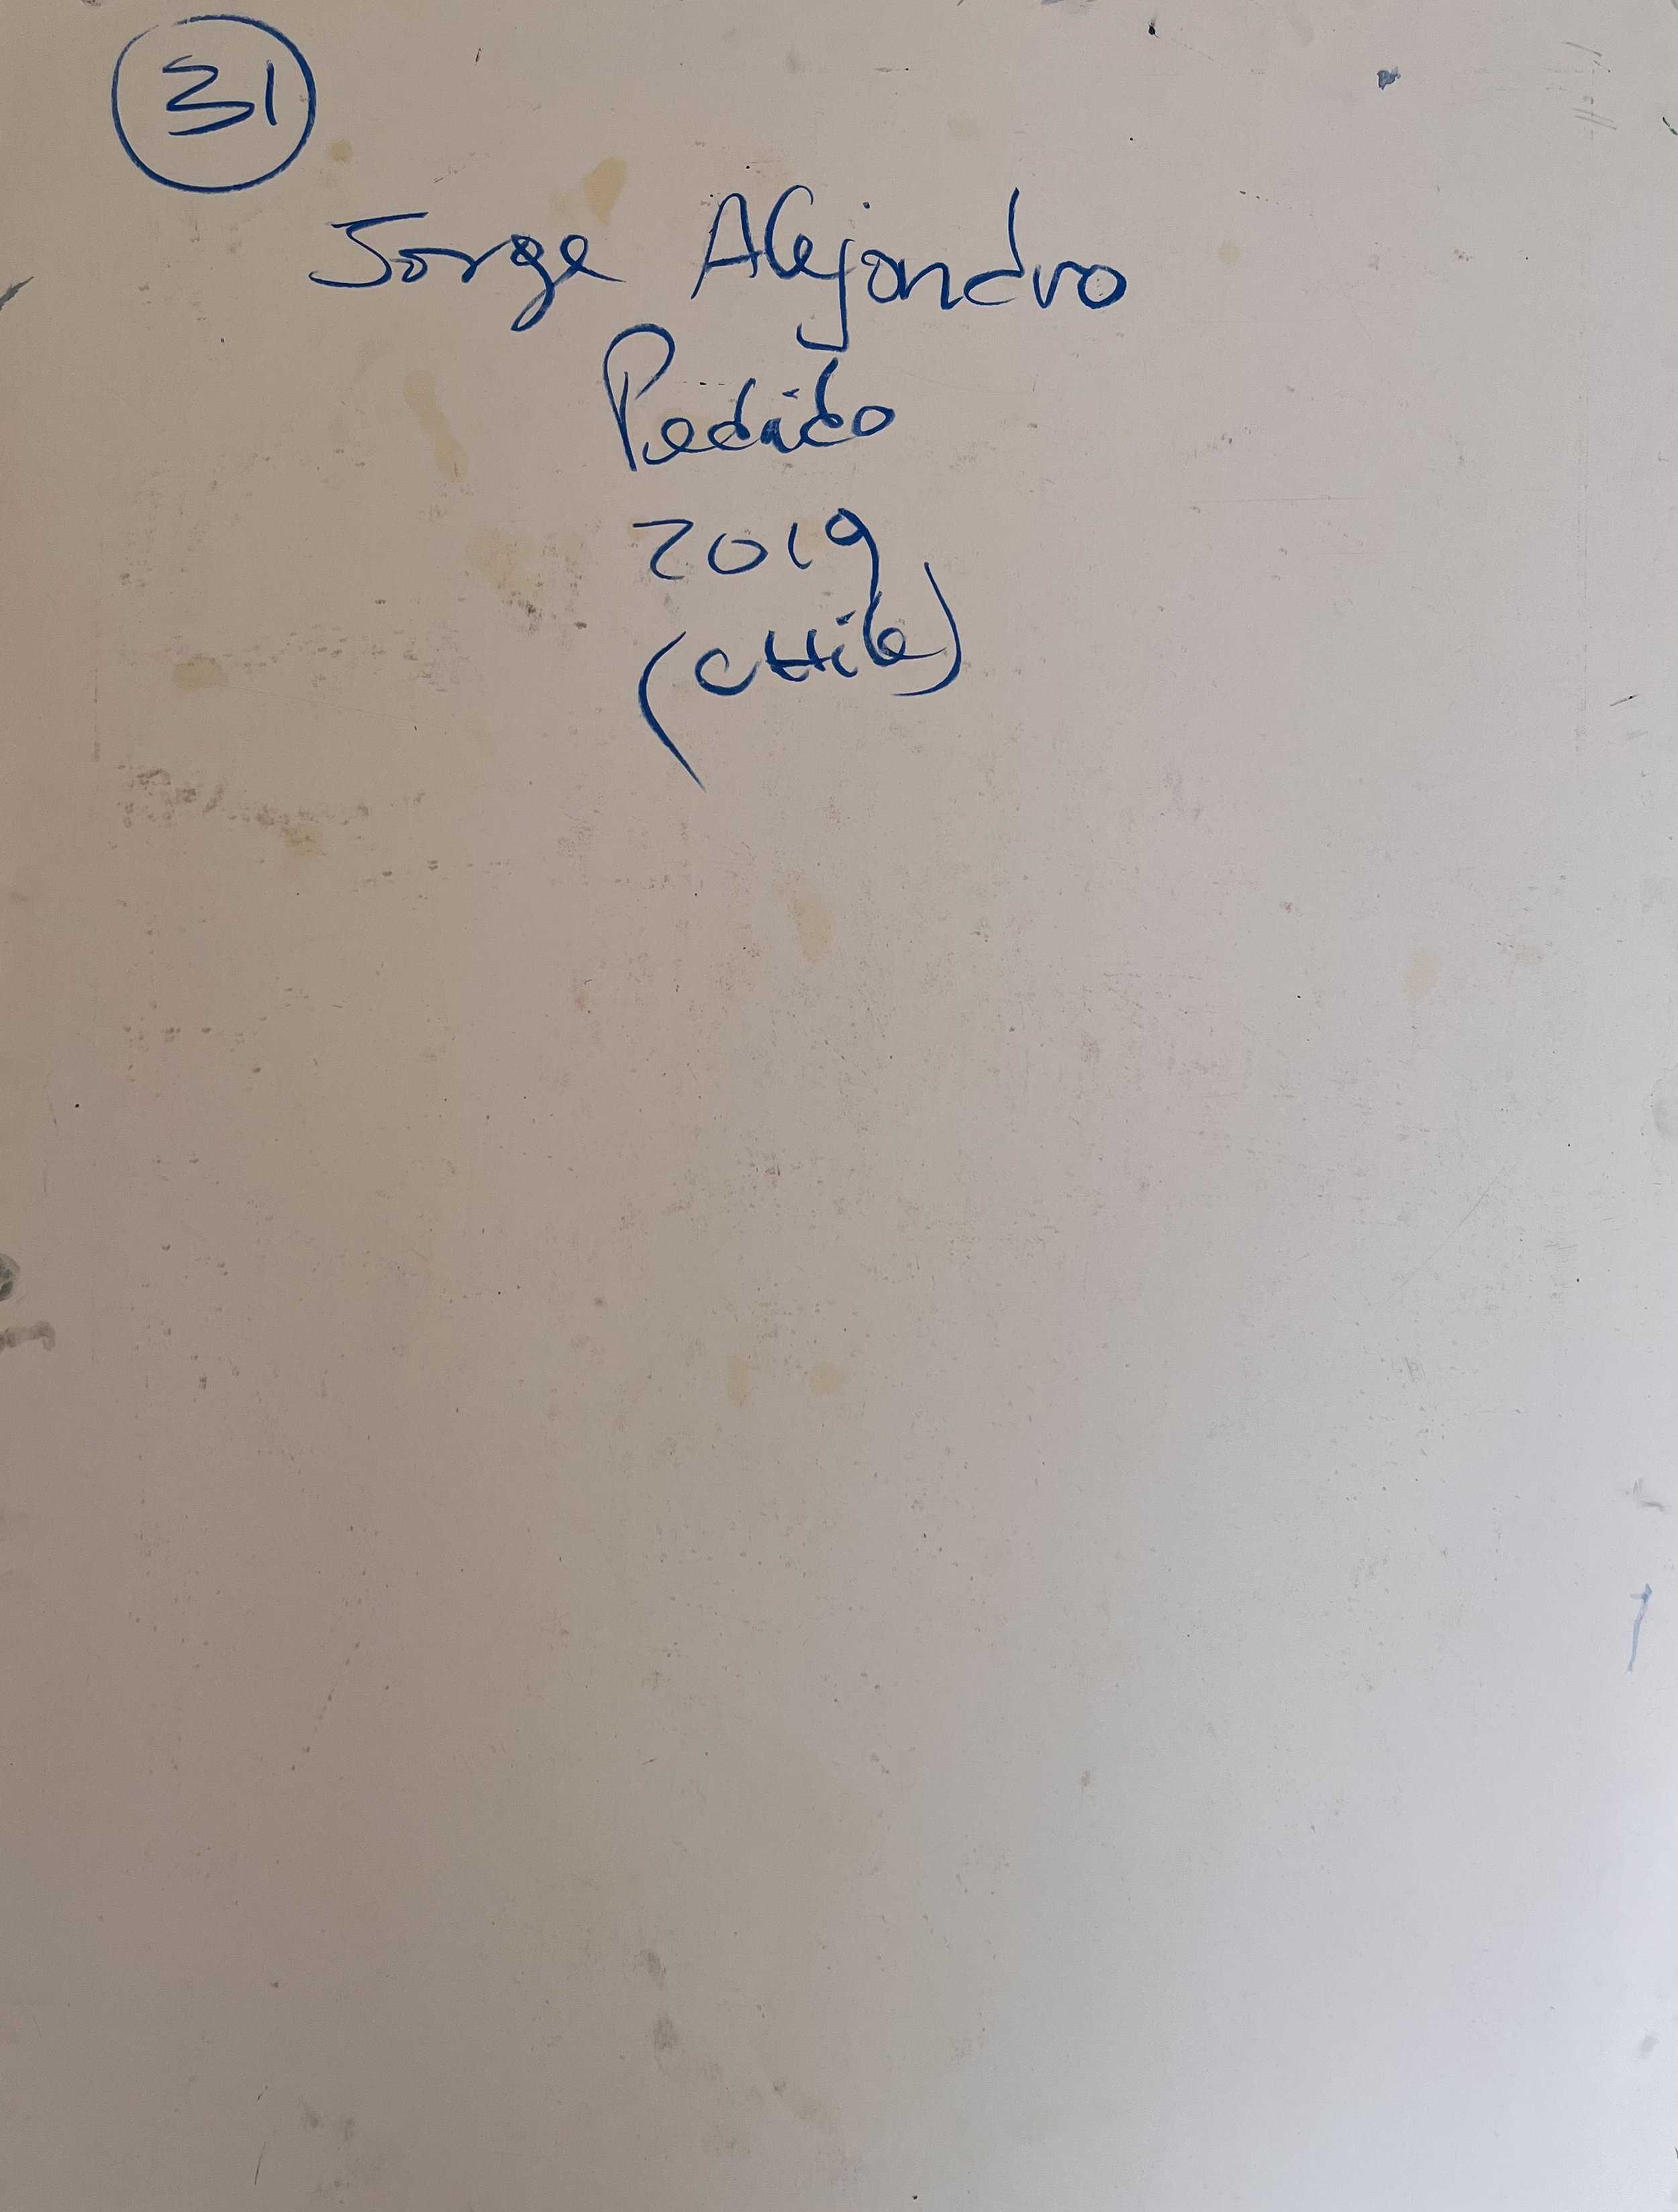 31
Jorge Alejandro
Pedido
2019
(CHile)